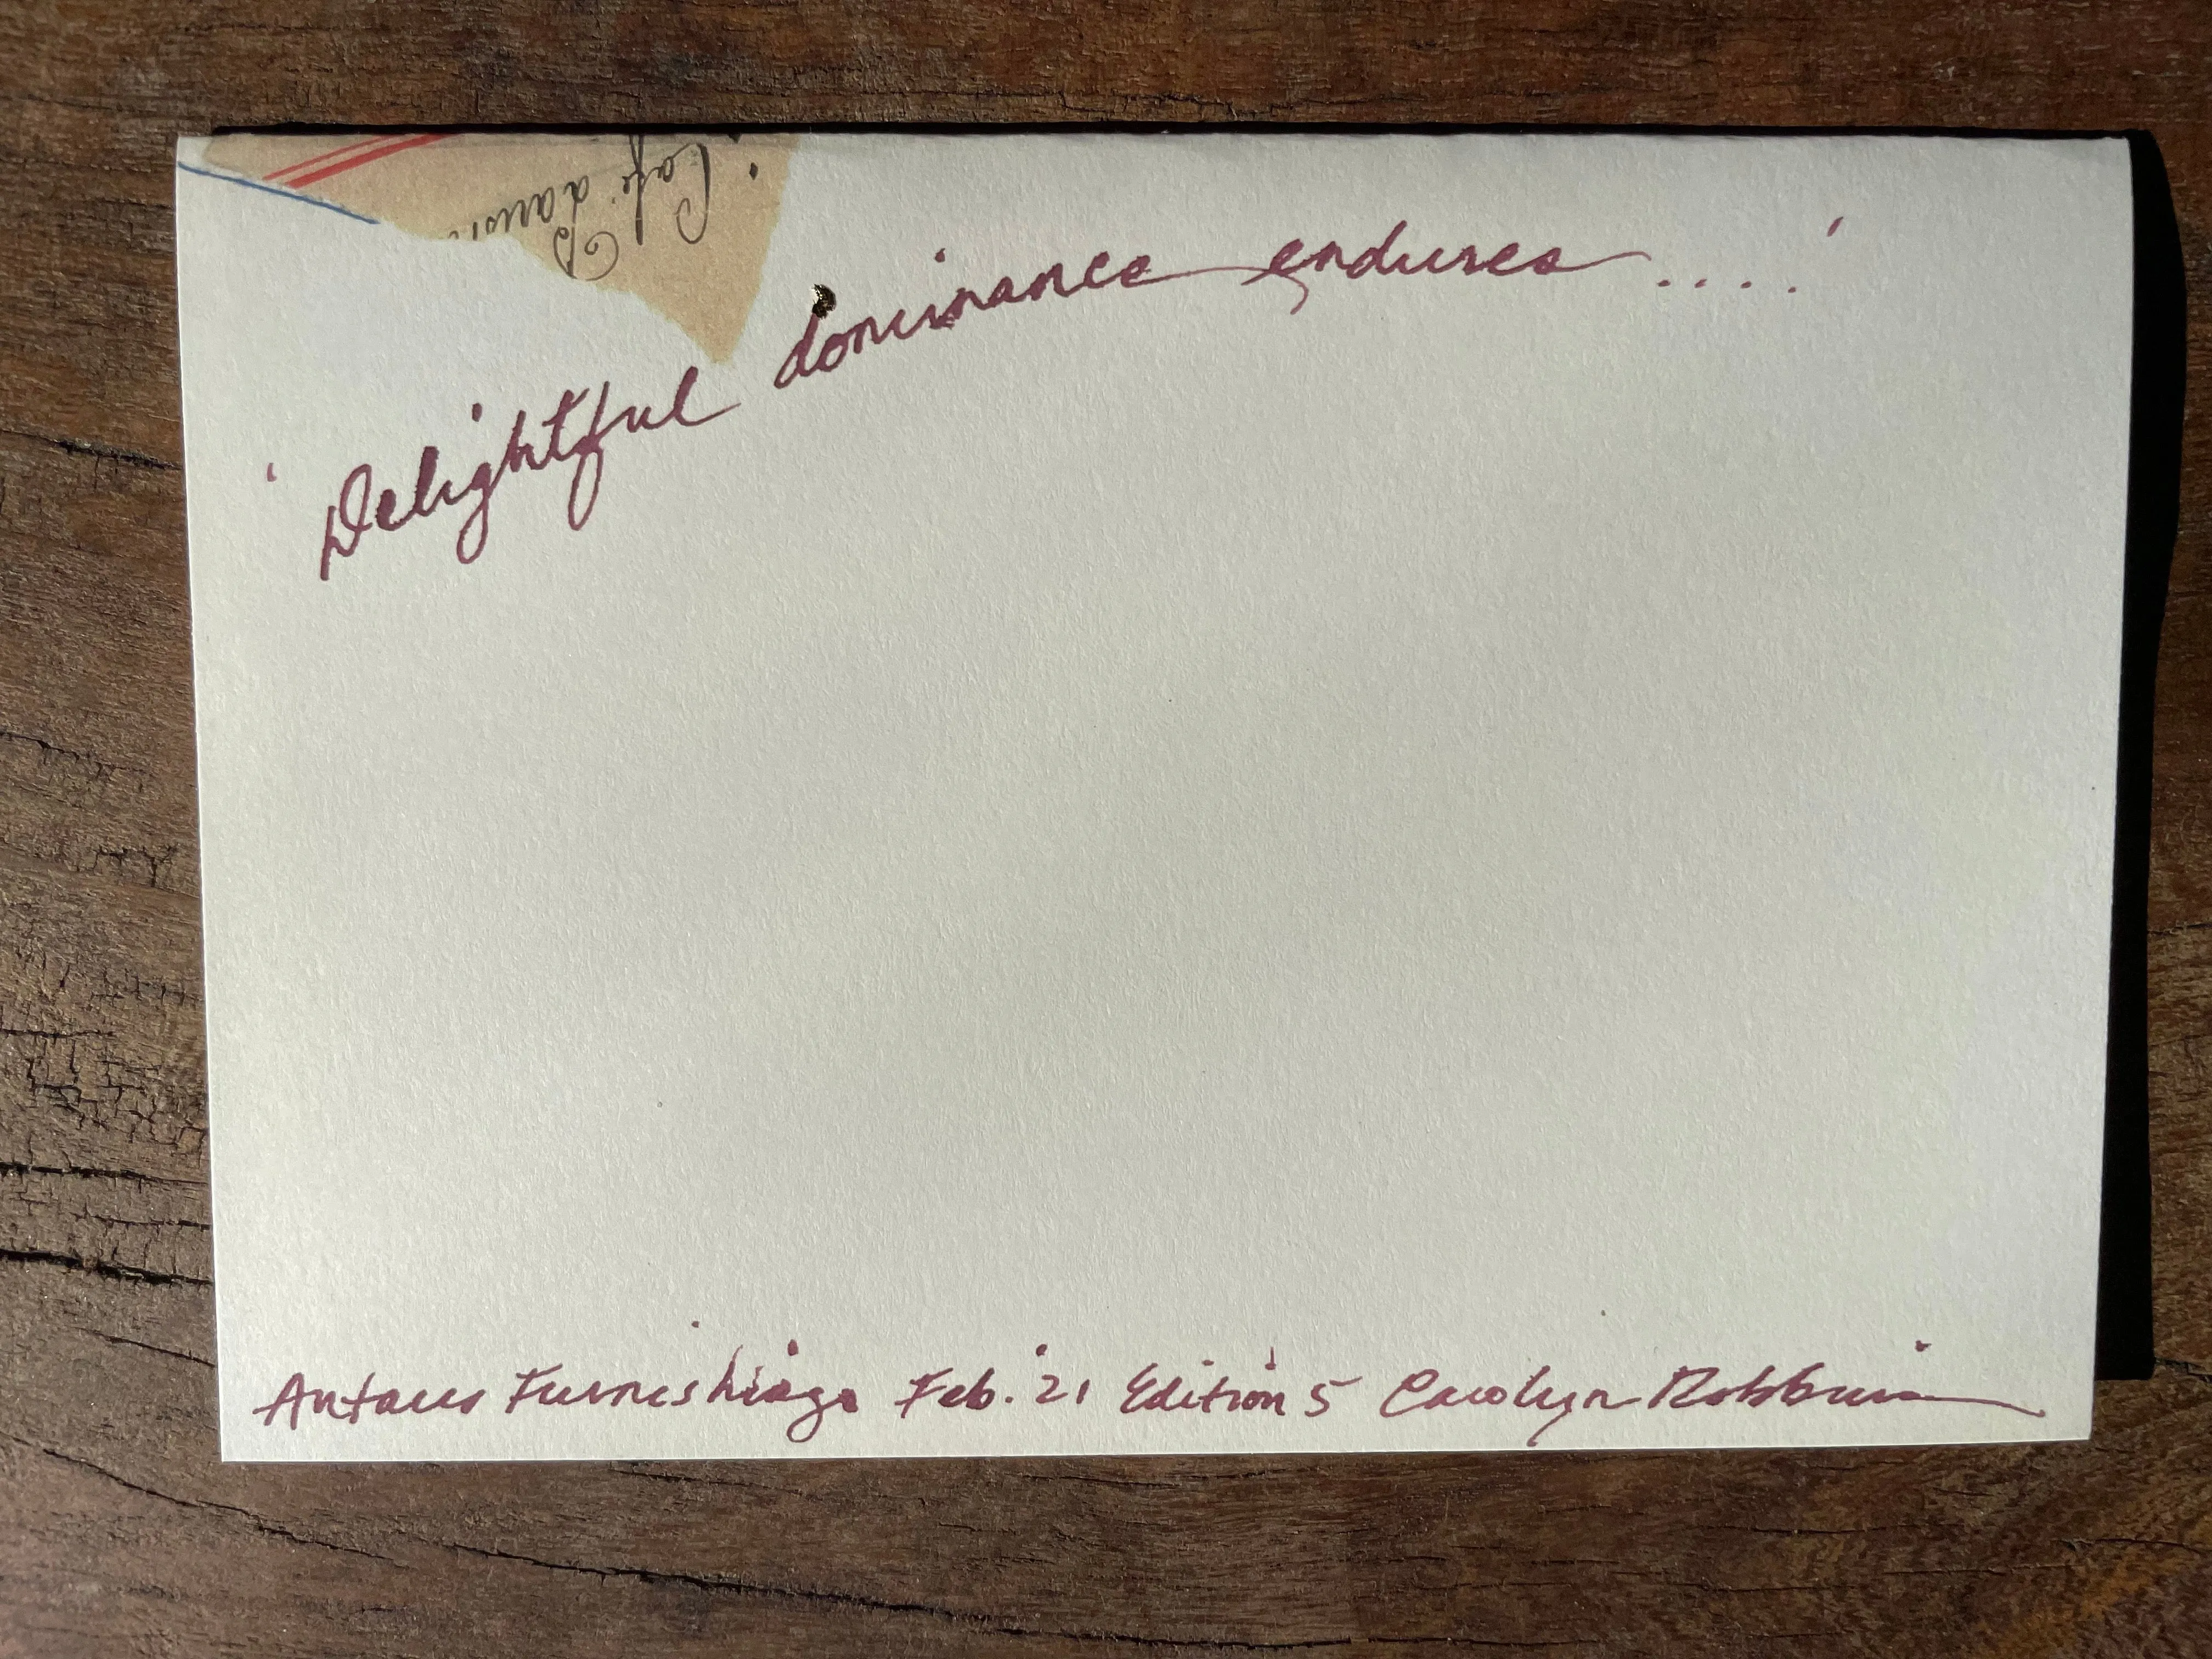 'Delightful dominance endures....'
Antaeus Furnishings Feb. '21 Edition 5 Carolyn Robbins